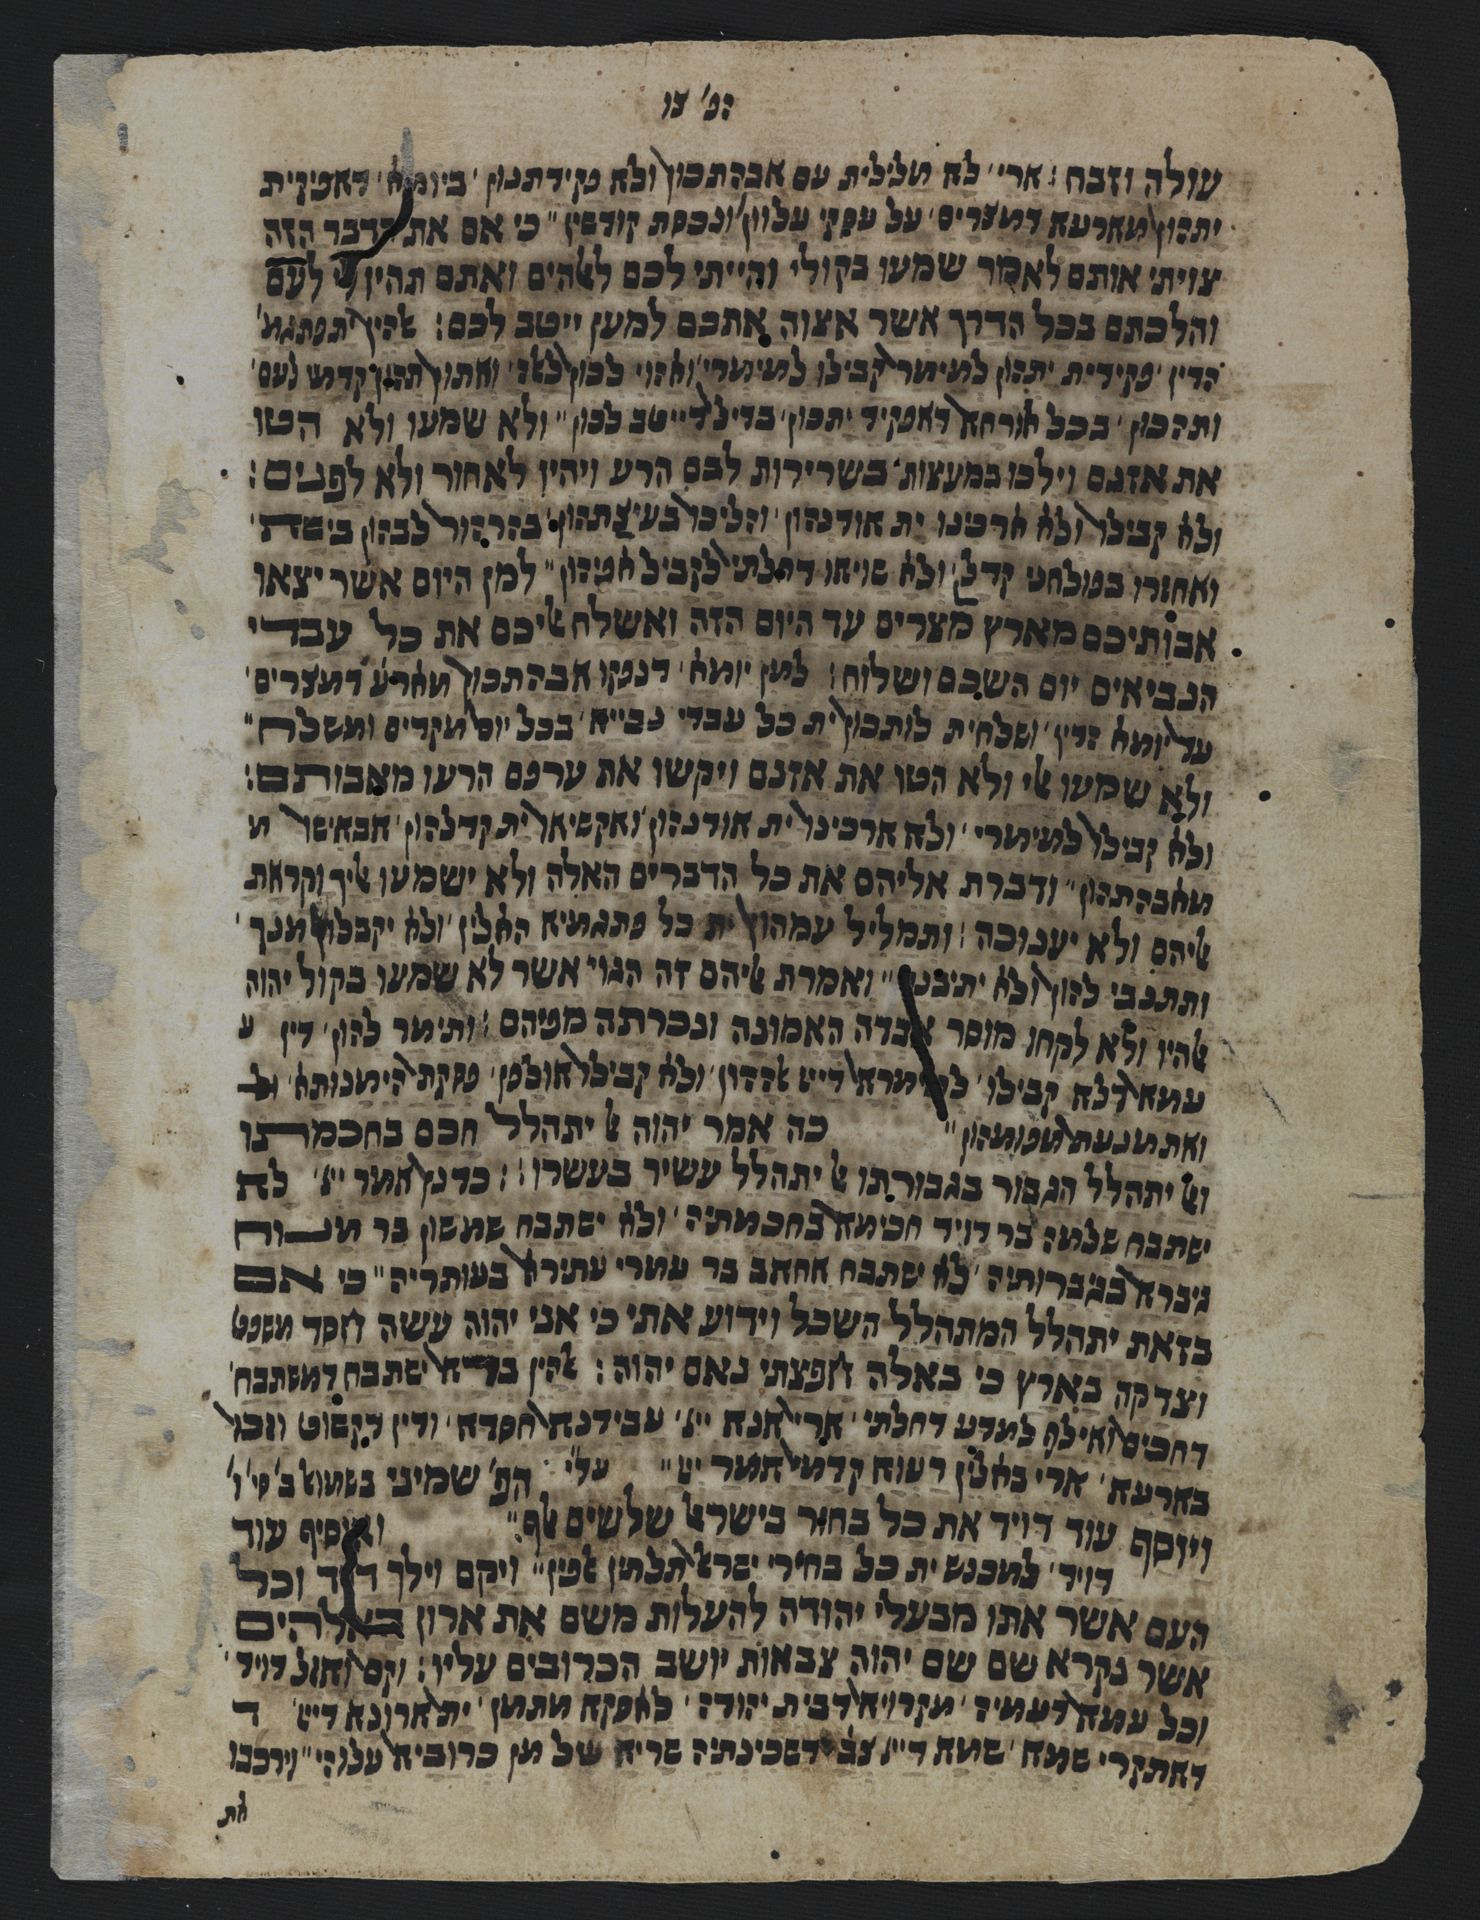 הפ' צו
עולה וזבח : ארי' לא מלילית עם אבהתכון ולא פקידתנון ' ביומא ' דאפיקית
יתהון מארעא דמצרים ' על עסקי עלוון ' ונכסת קודשין " כי אם את הדבר הזה
צויתי אותם לאמר שמעו בקולי והייתי לכם לאלהים ואתם תהיון לי לעם
והלכתם בכל הדרך אשר אצוה אתכם למען ייטב לכם : אלהין ית פתגמ'
הדין ' פקידית יתהון למימר קבילו למימרי ' ואהוי לכון לאלה ' ואתון תהון קדמי לעם '
ותהכון ' בכל אורחא דאפקיד יתכון ' בדיל דייטב לכון " ולא שמעו ולא הטו
את אזנם וילכו במעצות ' בשרירות לבם הרע ויהיו לאחור ולא לפנים :
ולא קבילו ולא ארכינו ית אודנהון ' והליכו בעיצתהון ' בהרהור לבהון בישא '
ואחזרו בפולחני קדל ' ולא שויאו דחלתי לקביל אפיהון " למן היום אשר יצאו
אבותיכם מארץ מצרים עד היום הזה ואשלח אליכם את כל עבדי
הנביאים יום השכם ושלוח : למן יומא ' דנפקו אבהתכון מארע' דמצרים '
עד יומא הדין ' ושלחית לותכון ית כל עבדי נבייא ' בכל יום מקדים ומשלח "
ולא שמעו אלי ולא הטו את אזנם ויקשו את ערפם הרעו מאבותם :
ולא קבילו למימרי ' ולא ארכינו ית אודנהון ' ואקשיאו ית קדלהון ' אבאישו מ
מאבהתהון " ודברת אליהם את כל הדברים האלה ולא ישמעו אליך וקראת
אליהם ולא יענוכה : ותמליל עמהון ית כל פתגמיא האלין ' ולא יקבלון מנך '
ותתנבי להון ולא יתיבנך " ואמרת אליהם זה הגוי אשר לא שמעו בקול יהוה
אלהיו ולא לקחו מוסר אבדה האמונה ונכרתה מפיהם : ותימר להון ' דין ע
עמא דלא קבילו ' למימרא דייי אלההון ' ולא קבילו אולפן ' פסקת הימנותא '
ואתמנעת מפומהון " כה אמר יהוה אל יתהלל חכם בחכמתו
ואל יתהלל הגבור בגבורתו אל יתהלל עשיר בעשרו : כדנן אמר ייי ' לא
ישתבח שלמה בר דויד חכימא בחכמתיה ' ולא ישתבח שמשון בר מנוח
גיברא בגברותיה ' לא ישתבח אחאב בר עמרי עתירא בעותריה " כי אם
בזאת יתהלל המתהלל השכל וידוע אתי כי אני יהוה עשה חסד משפט
וצדקה בארץ כי באלה חפצתי נאם יהוה : אלהין בדא ישתבח דמשתבח '
דחכים ואילף למדע דחלתי ' ארי אנא ייי ' עבידנא חסדא ' ודין דקשוט וזכו
בארעא ' ארי באלין רעוא קדמי אמר ייי " הפ' שמיני בשמואל ב' סי' ו'
ויוסף עוד דויד את כל בחור בישראל שלשים אלף " ואוסיף עוד
דויד ' למכנש ית כל בחירי ישראל תלתין אלפין " ויקם וילך דויד וכל
העם אשר אתו מבעלי יהודה להעלות משם את ארון האלהים
אשר נקרא שם שם יהוה צבאות יושב הכרובים עליו : וקם ואזל דויד '
וכל עמא דעמיה ' מקרויא דבית יהודה ' לאסקא מתמן ' ית ארונא דייי ' ד
דאתקרי שמא ' שמא דייי צב' דשכינתיה שריא של מן כרוביא עלוהי " וירכבו
את